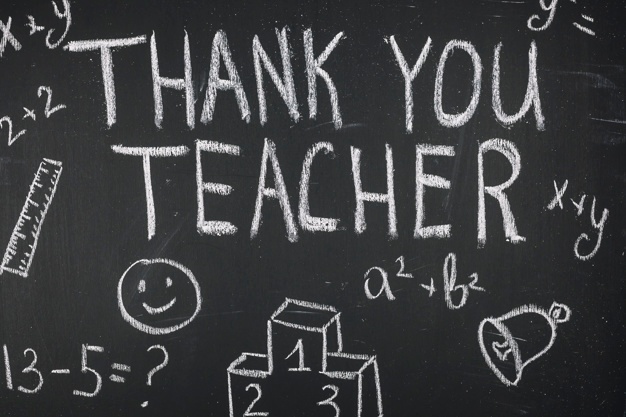 x+y
y=
THANK YOU
2+2
TEACHER
x+y
a²+b²
13-5=?
1
2 3